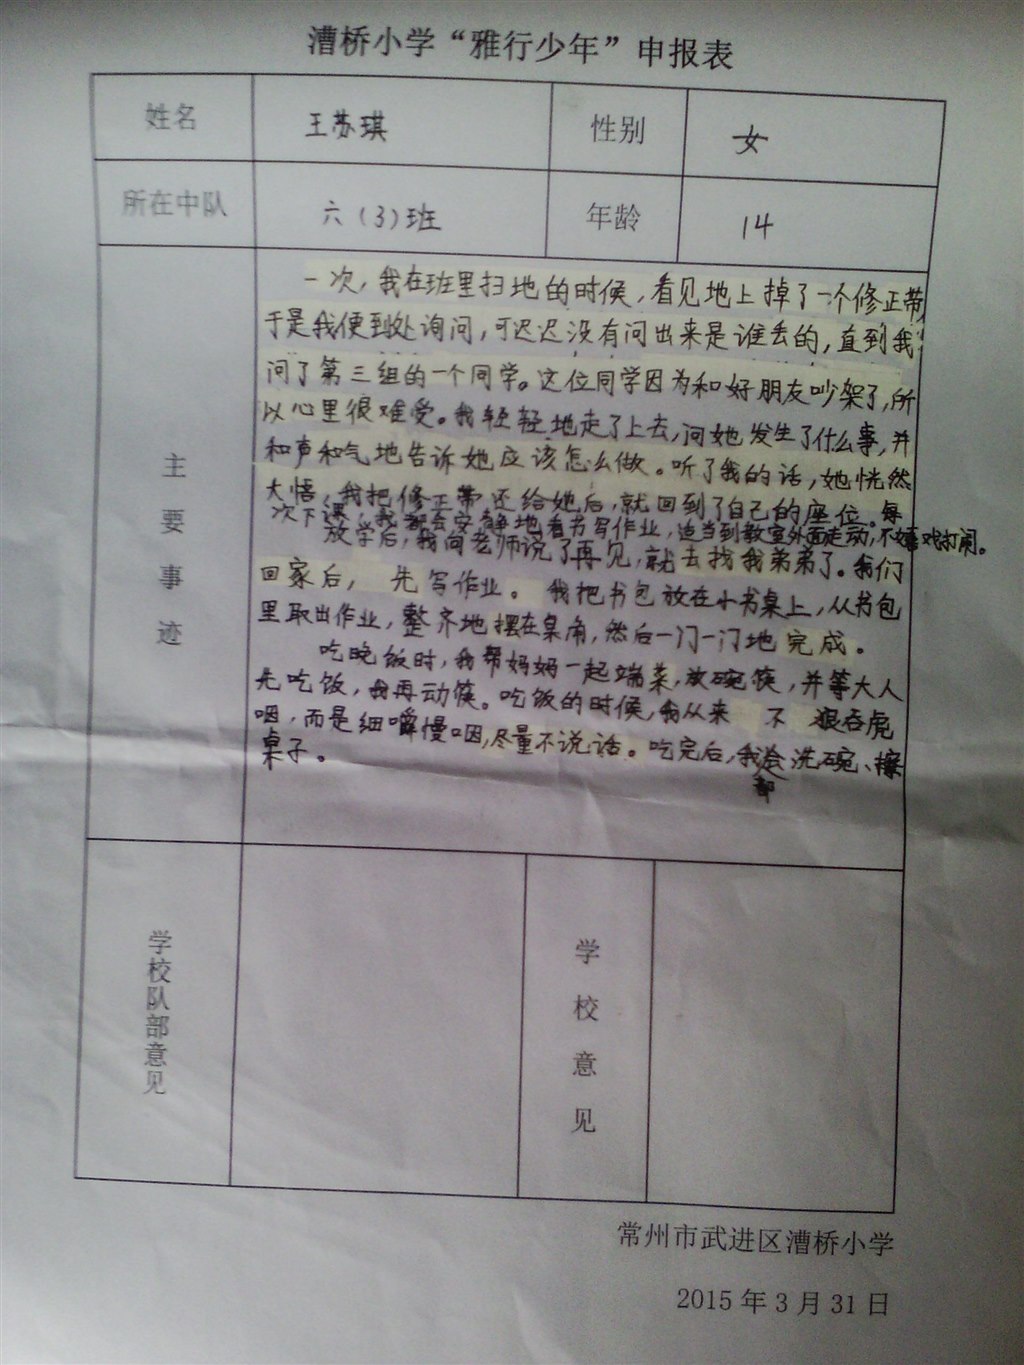 漕桥小学“雅行少年”申报表
姓名 王苏琪 性别 女
所在中队 六(3)班 年龄 14
主要事迹
一次,我在班里扫地的时候,看见地上掉了一个修正带
于是我便到处询问,可迟迟没有问出来是谁丢的,直到我
问了第三组的一个同学。这位同学因为和好朋友吵架了,所
以心里很难受。我轻轻地走了上去,问她发生了什么事,并
和声和气地告诉她应该怎么做。听了我的话,她恍然
大悟,我把修正带还给她后,就回到了自己的座位。每
次下课,我都会安静地看书写作业,适当到教室外面走动,不嬉戏打闹。
放学后,我向老师说了再见,就去找我弟弟了。我们
回家后,先写作业。我把书包放在小书桌上,从书包
里取出作业,整齐地摆在桌角,然后一门一门地完成。
吃晚饭时,我帮妈妈一起端菜,放碗筷,并等大人
先吃饭,我再动筷。吃饭的时候,我从来不狼吞虎
咽,而是细嚼慢咽,尽量不说话。吃完后,我都会洗碗、擦
桌子。
学校队部意见 学校意见
常州市武进区漕桥小学
2015年3月31日